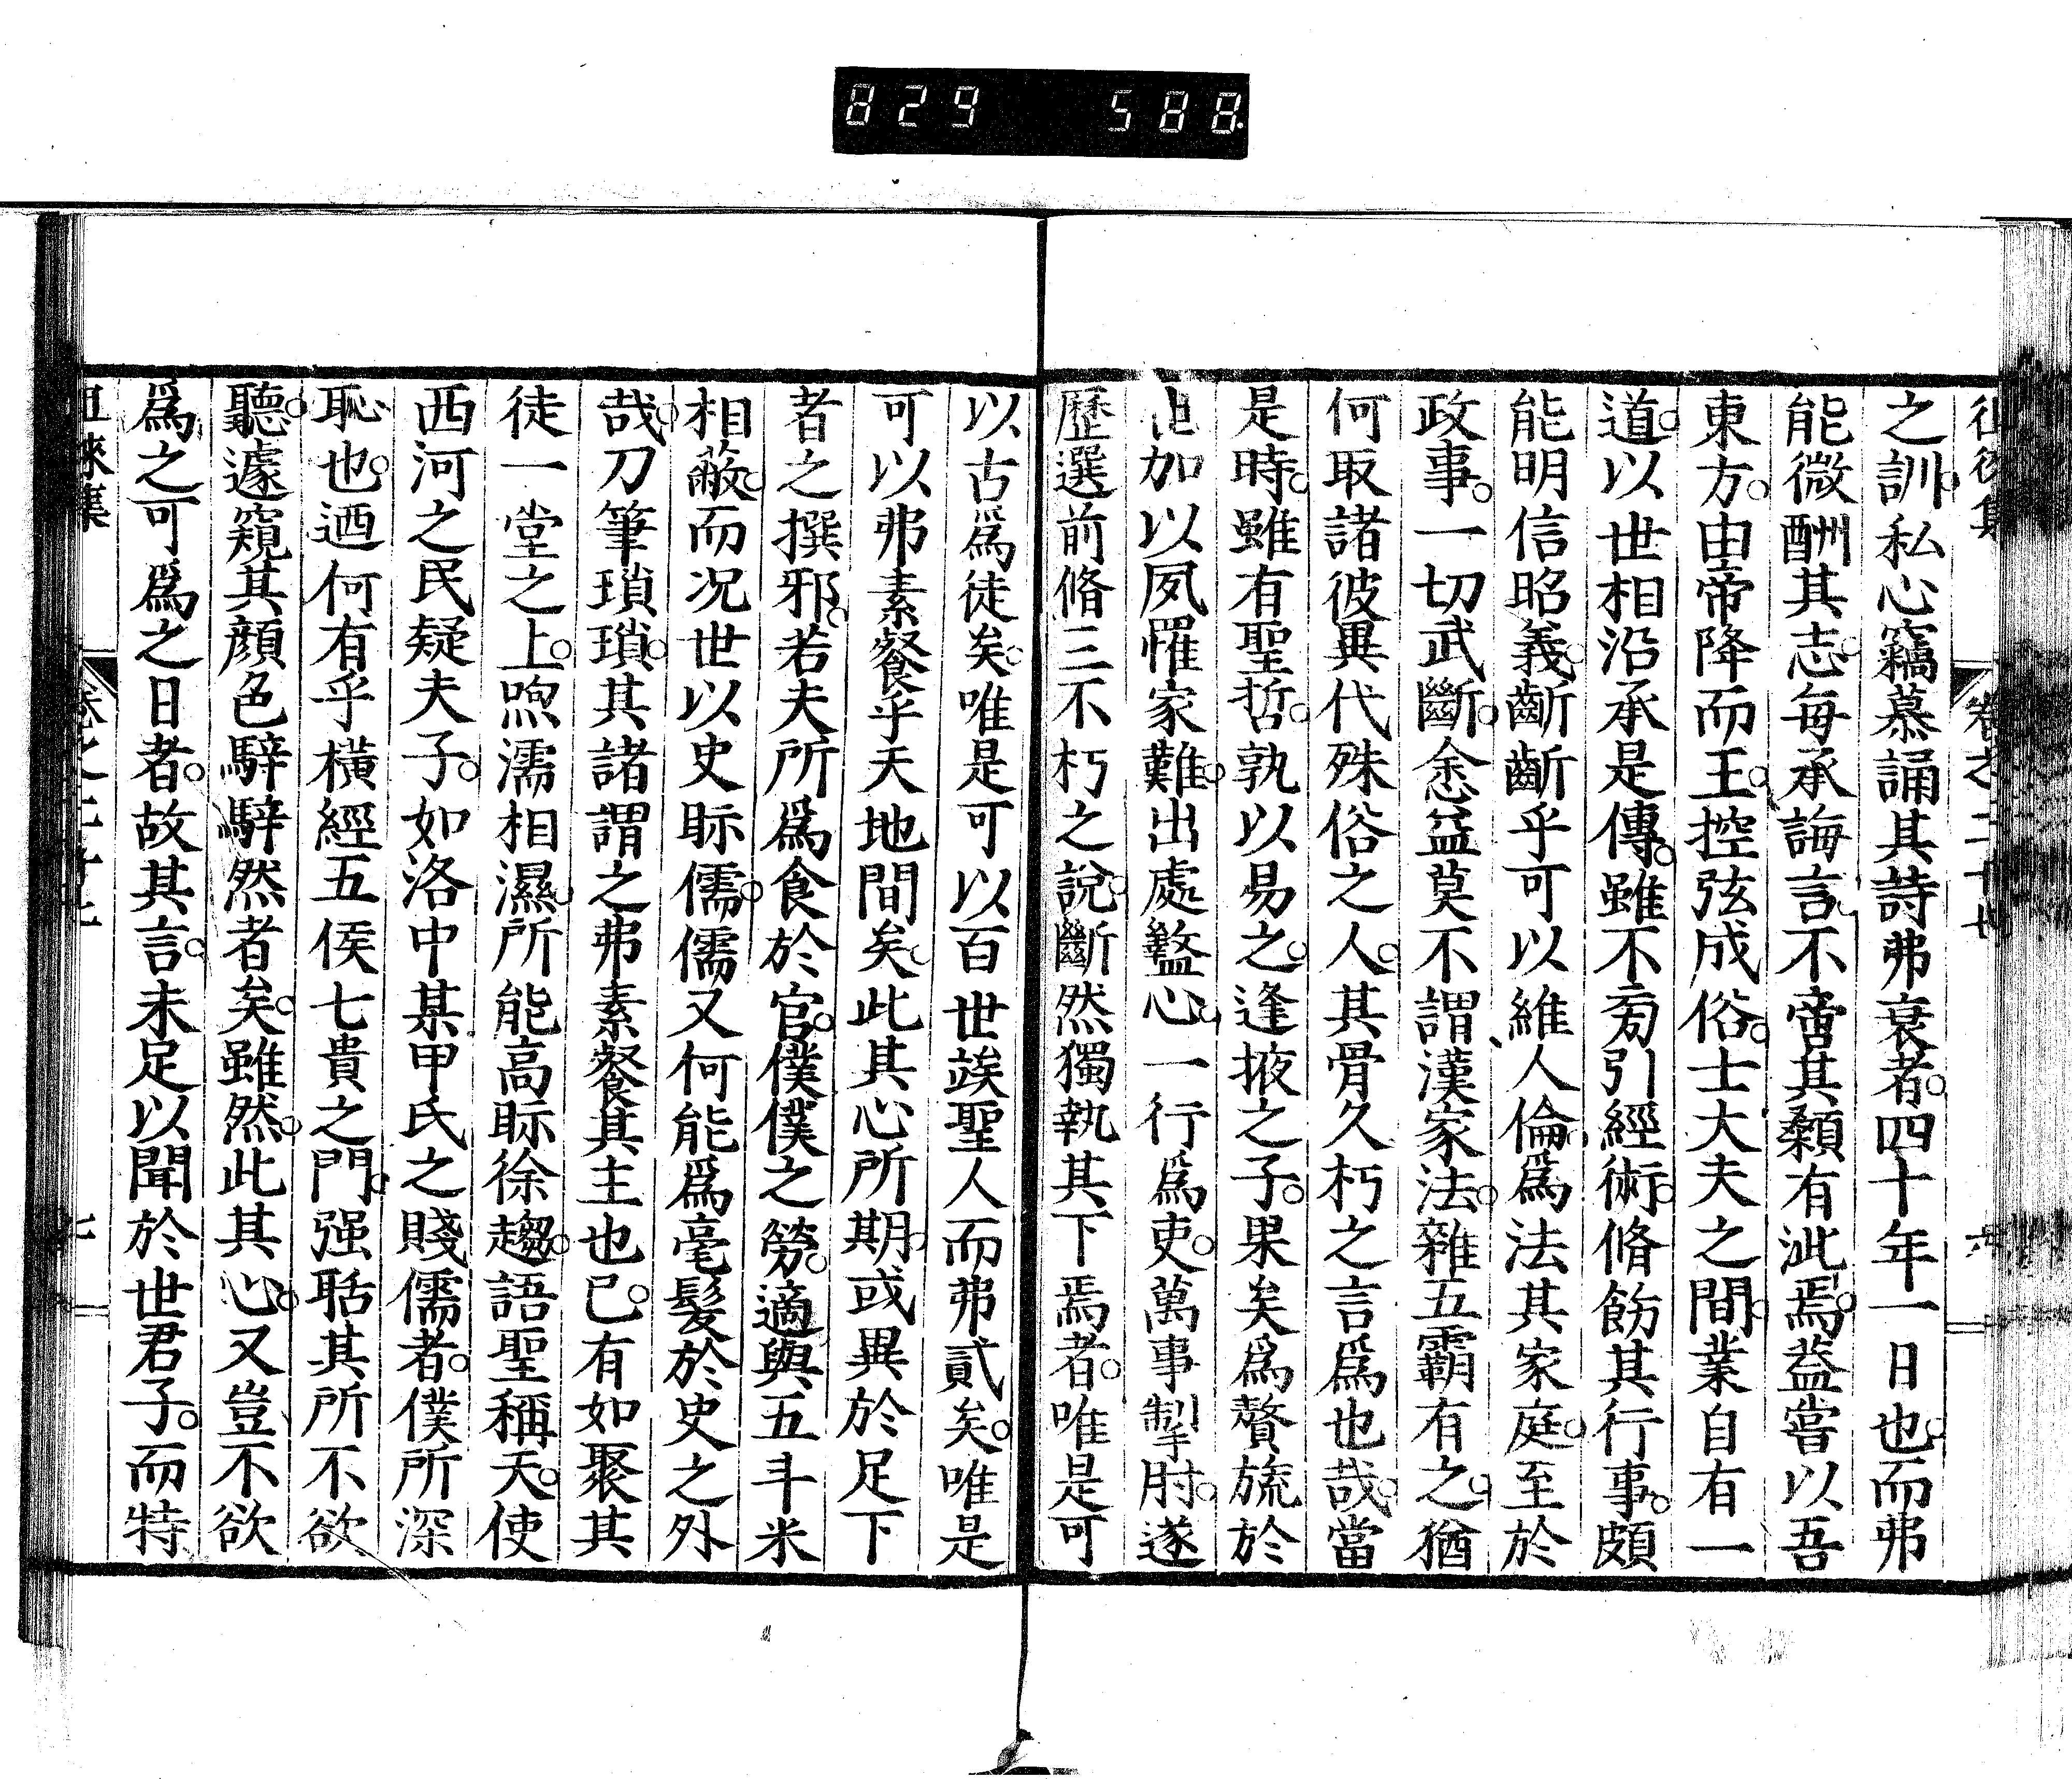 829 588
之訓。私心竊慕誦其詩弗衰者。四十年一日也。而弗
能微酬其志。每承誨言。不啻其顙有泚焉。蓋嘗以吾
東方。由帝降而王。控弦成俗。士大夫之間。業自有一
道。以世相沿承是傳。雖不旁引經術。脩飭其行事。頗
能明信昭義。齗齗乎可以維人倫。爲法其家庭。至於
政事。一切武斷。悆益莫不謂漢家法。雜五霸有之。猶
何取諸彼異代殊俗之人。其骨久朽之言爲也哉。當
是時。雖有聖哲。孰以易之。逢掖之子。果矣爲贅旒於
加以夙罹家難。出處盭心。一行爲吏。萬事掣肘。遂
歷選前脩三不朽之說。斷然獨執其下焉者。唯是可
以古爲徒矣。唯是可以百世竢聖人而弗貳矣。唯是
可以弗素餐乎天地間矣。此其心所期。或異於足下
者之撰邪。若夫所爲食於官。僕僕之勞。適與五斗米
相蔽。而况世以史眎儒。儒又何能爲毫髮於史之外
哉。刀筆瑣瑣。其諸謂之弗素餐其主也已。有如聚其
徒一堂之上。喣濡相濕。所能高眎徐趨。語聖稱天。使
西河之民疑夫子。如洛中某甲氏之賤儒者。僕所深
恥也。迺何有乎橫經五侯七貴之門。强聒其所不欲
聽。遽窺其顔色騂騂然者矣。雖然。此其心。又豈不欲
爲之可爲之日者。故其言。未足以聞於世君子。而特
徠集 卷之二十七 七